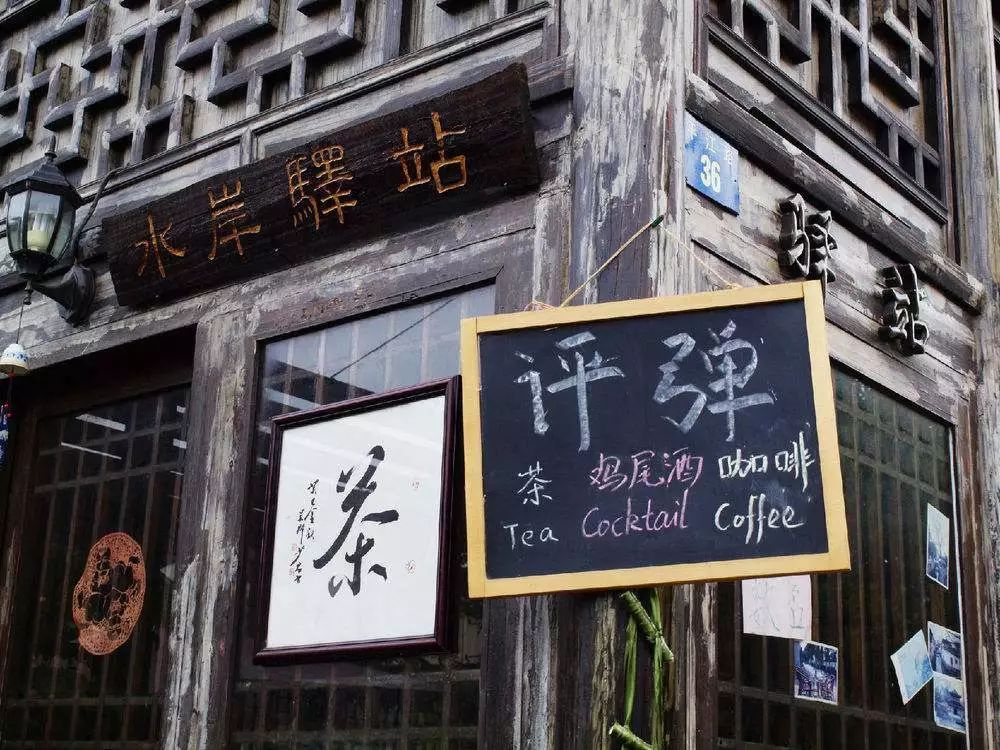 水岸驛站
36
驿站
评弹
茶 鸡尾酒 咖啡
Tea Cocktail Coffee
茶